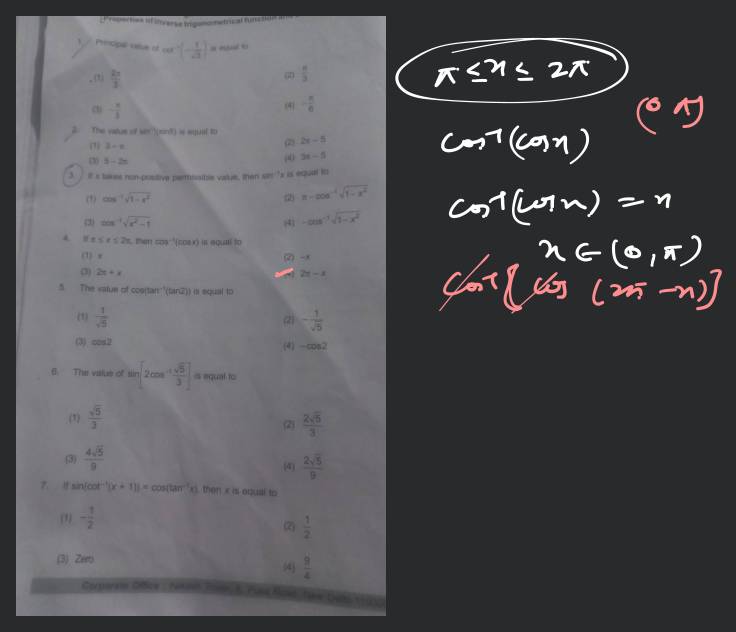 [Properties of inverse trigonometrical function
1. Principal value of cot⁻¹(-1/√3) is equal to
(1) 2π/3 (2) π/3
(3) -π/3 (4) -π/6
2. The value of sin⁻¹(sin5) is equal to
(1) 3 – π (2) 2π – 5
(3) 5 – 2π (4) 3π – 5
3. If x takes non-positive permissible value, then sin⁻¹x is equal to
(1) cos⁻¹√1–x² (2) π – cos⁻¹√1–x²
(3) cos⁻¹√x²–1 (4) –cos⁻¹√1–x²
4. If π ≤ x ≤ 2π, then cos⁻¹(cosx) is equal to
(1) x (2) –x
(3) 2π + x (4) 2π – x
5. The value of cos(tan⁻¹(tan2)) is equal to
(1) 1/√5 (2) –1/√5
(3) cos2 (4) –cos2
6. The value of sin[2cos⁻¹ √5/3] is equal to
(1) √5/3 (2) 2√5/3
(3) 4√5/9 (4) 2√5/9
7. If sin(cot⁻¹(x + 1)) = cos(tan⁻¹x), then x is equal to
(1) –1/2 (2) 1/2
(3) Zero (4) 9/4
Corporate Office :
π ≤ x ≤ 2π
(0 π)
cos⁻¹(cosx)
cos⁻¹(cosx) = x
x ∈ (0, π)
cos⁻¹[cos (2π – x)]